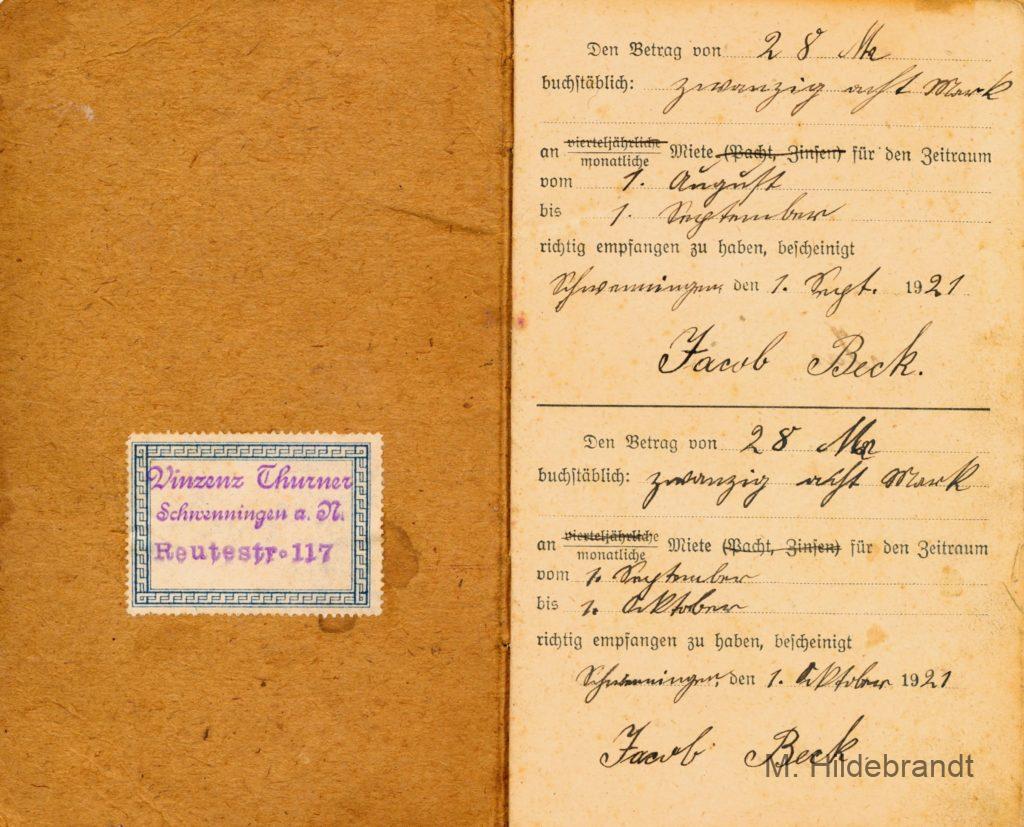 Vinzenz Thurner
Schwenningen a. N.
Reutestr. 117
Den Betrag von 28 Mk
buchstäblich: zwanzig acht Mark
an vierteljährliche
monatliche Miete (Pacht, Zinsen) für den Zeitraum
vom 1. August
bis 1. September
richtig empfangen zu haben, bescheinigt
Schwenningen, den 1. Sept. 1921
Jacob Beck.
Den Betrag von 28 Mk
buchstäblich: zwanzig acht Mark
an vierteljährliche
monatliche Miete (Pacht, Zinsen) für den Zeitraum
vom 1. September
bis 1. Oktober
richtig empfangen zu haben, bescheinigt
Schwenningen, den 1. Oktober 1921
Jacob Beck
M. Hildebrandt